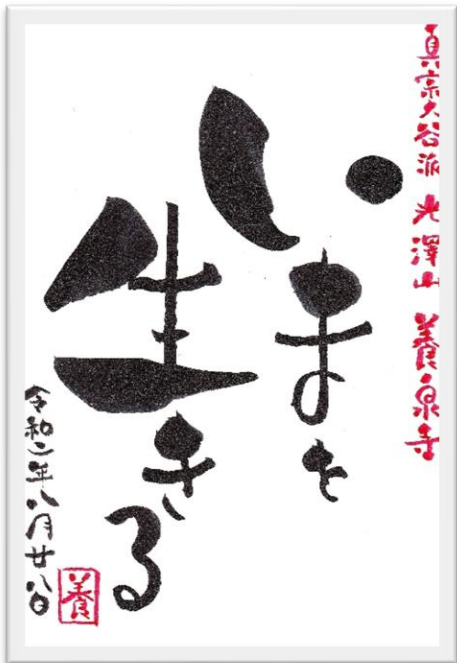 真宗大谷派 光澤山 養泉寺
いまを
生きる
令和二年八月廿八日
養